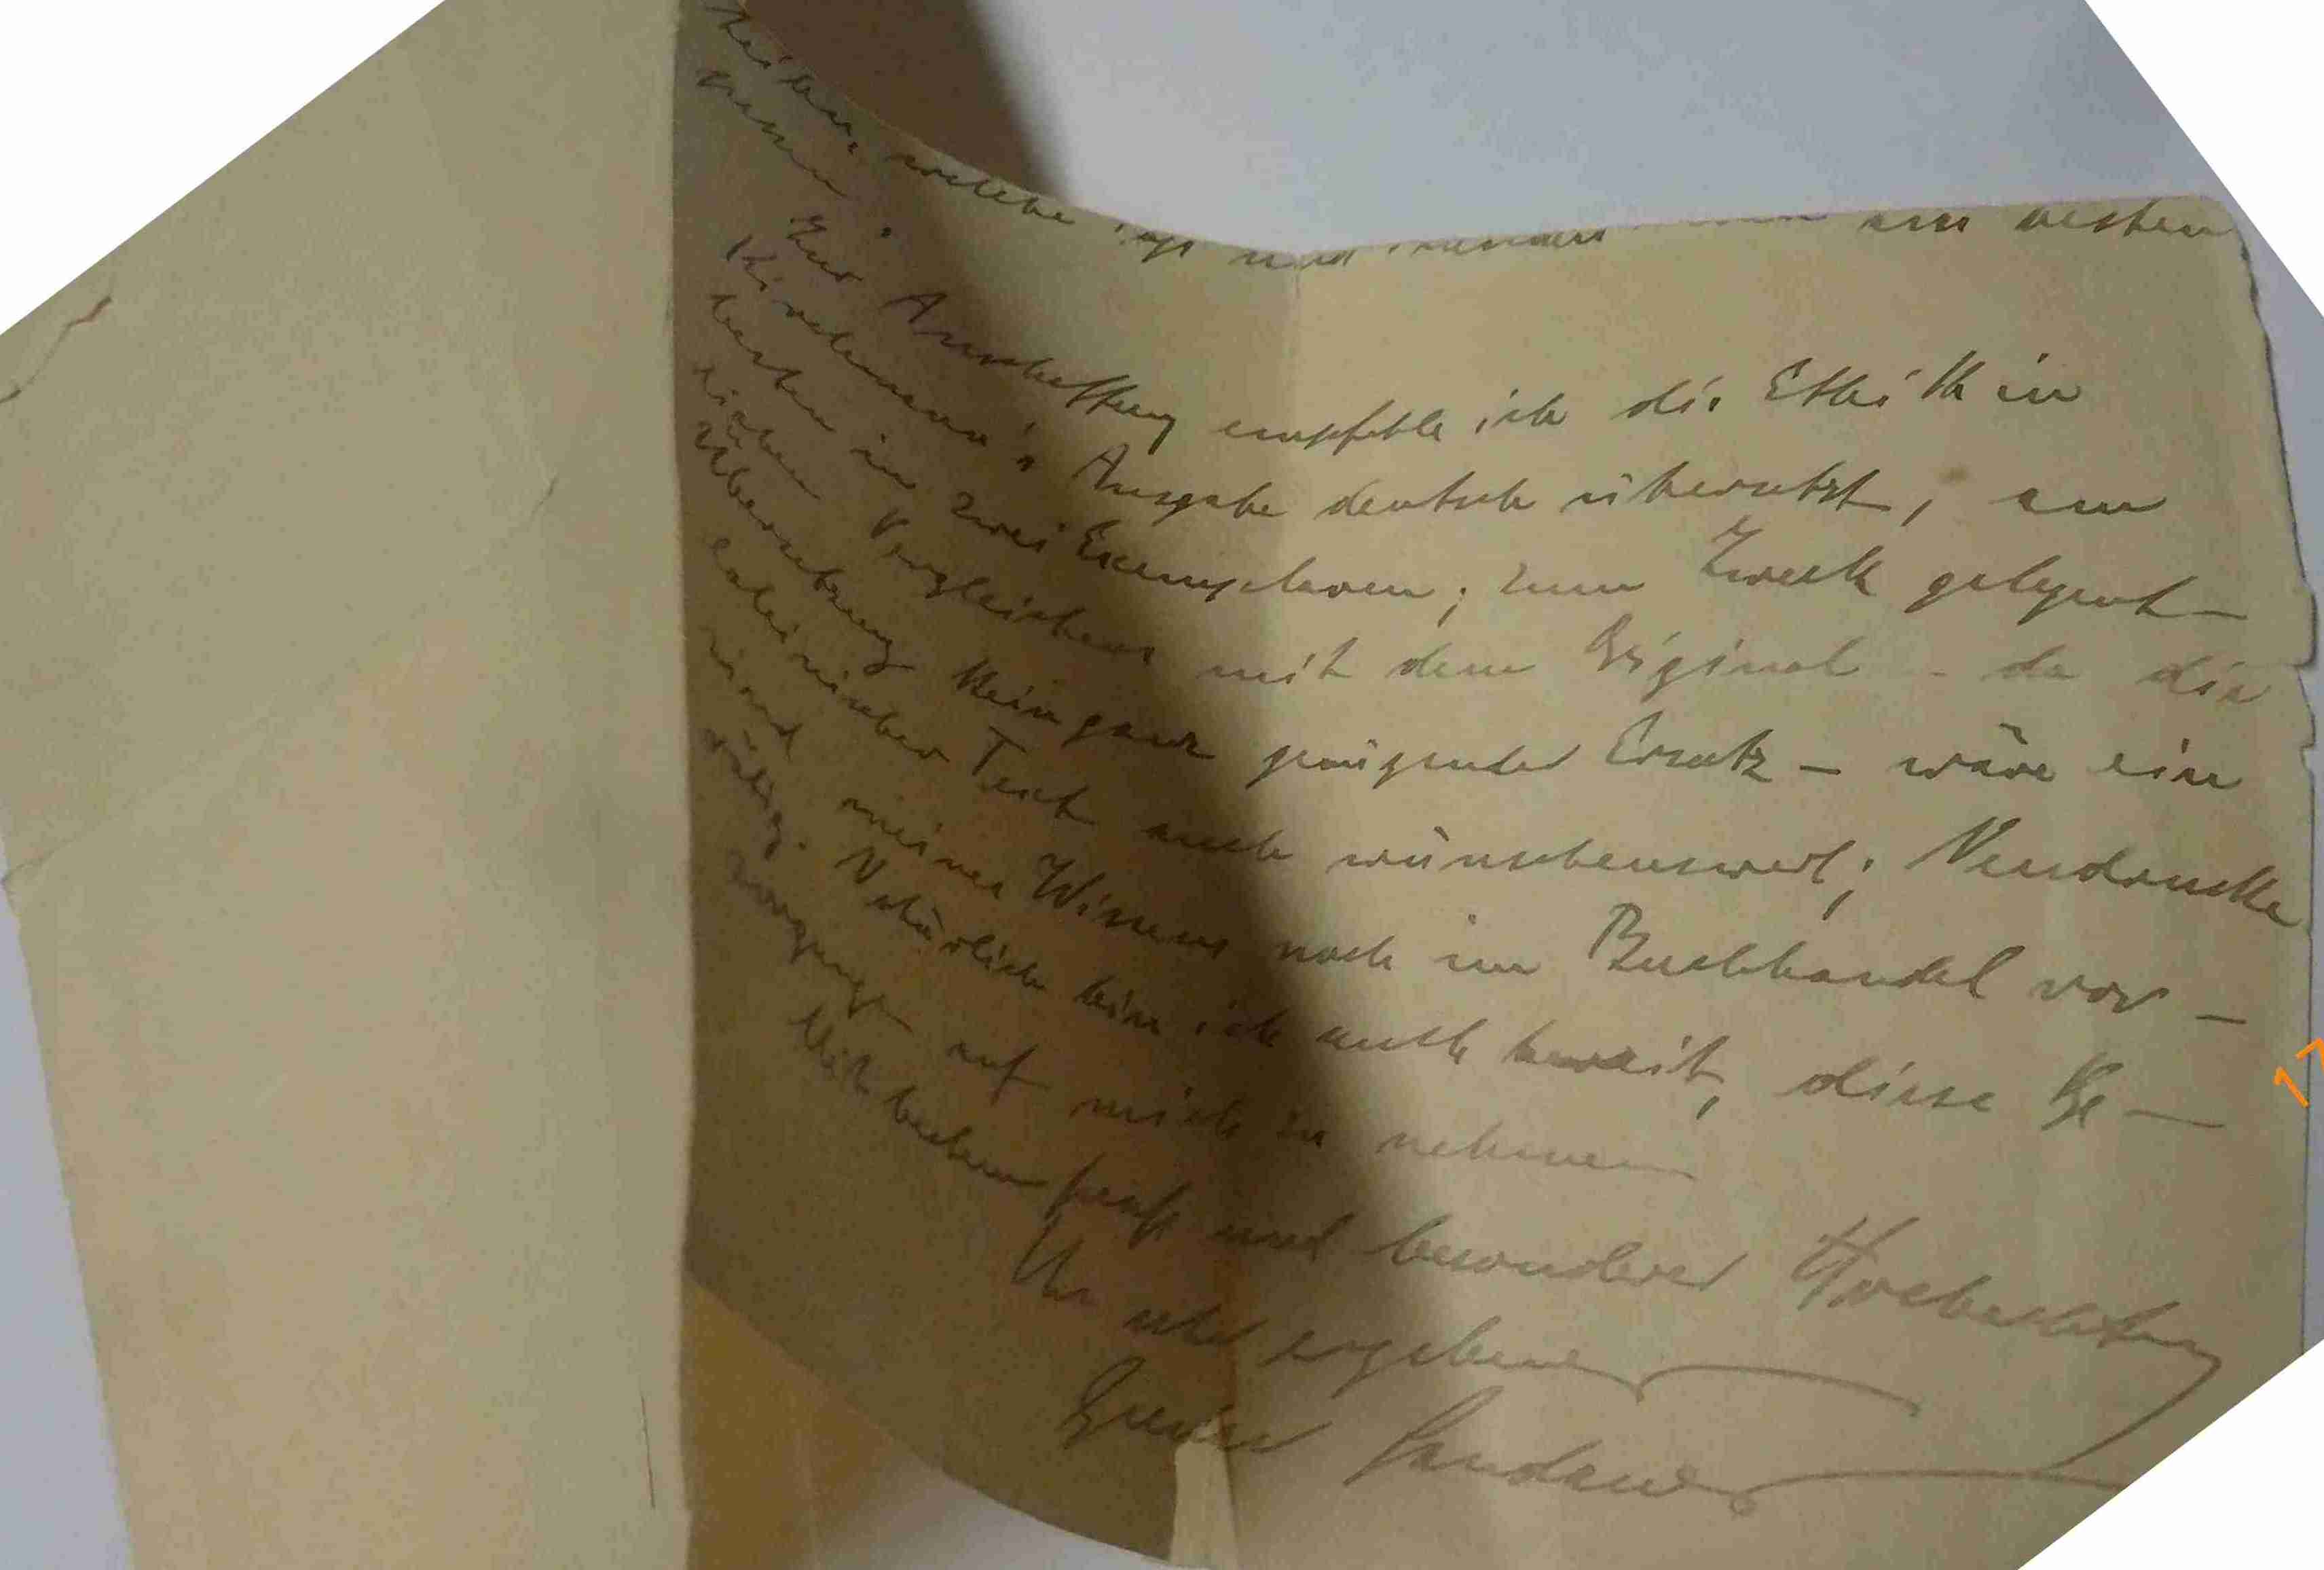 theilen, welche Tage und Stunden Ihnen am besten
passen.
Zur Anschaffung empfehle ich die Ethik in
Kirchmann's Ausgabe deutsch übersetzt, am
besten in zwei Exemplaren; zum Zweck gelegent-
lichen Vergleichens mit dem Original - da die
Übersetzung kein ganz genügender Ersatz - wäre ein
lateinischer Text auch wünschenswert; Neudrucke
sind meines Wissens noch im Buchhandel vor-
rätig. Natürlich bin ich auch bereit, diese Be-
sorgungen auf mich zu nehmen
Mit bestem Gruß und besonderer Hochachtung
Ihr sehr ergebener
Gustav Landauer